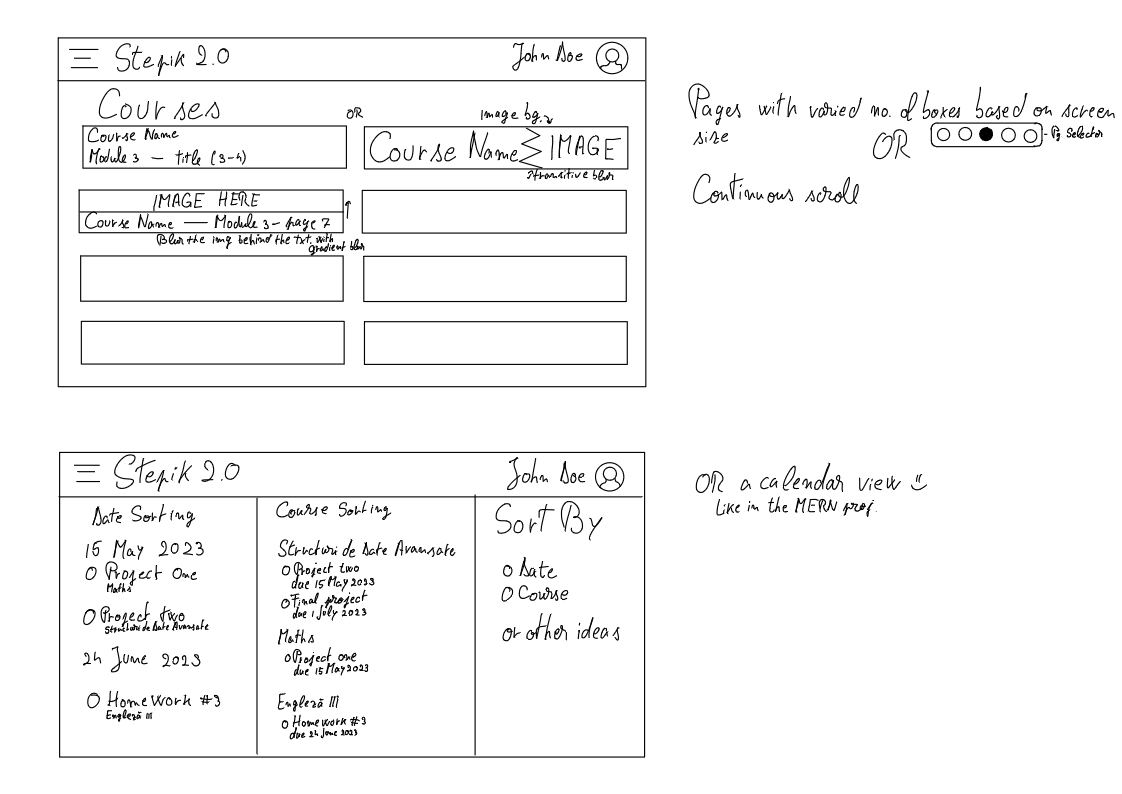 Stepik 2.0
John Doe
Courses
OR
Image bg.
Course Name
Module 3 - title (3-4)
Course Name IMAGE
transitive blur
IMAGE HERE
Course Name — Module 3 - page 7
Blur the img behind the txt. with
gradient blur
Pages with varied no. of boxes based on screen
size
OR
- Pg Selector
Continuous scroll
Stepik 2.0
John Doe
Date Sorting
15 May 2023
Project One
Maths
Project two
Structuri de Date Avansate
24 June 2023
HomeWork #3
Engleză III
Course Sorting
Structuri de Date Avansate
Project two
due 15 May 2023
Final project
due 1 July 2023
Maths
Project one
due 15 May 2023
Engleză III
Homework #3
due 24 June 2023
Sort By
Date
Course
or other ideas
OR a calendar view
Like in the MERN proj.